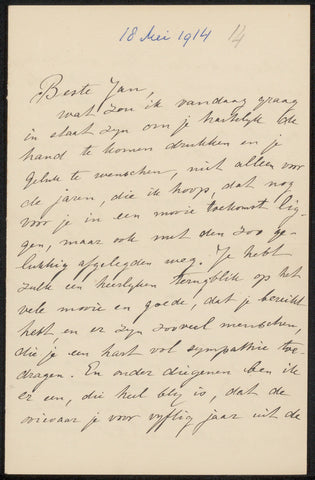 18 Mei 1914 14
Beste Jan,
wat zou ik vandaag graag
in staat zijn om je hartelijk de
hand te komen drukken en je
geluk te wenschen, niet alleen voor
de jaren, die ik hoop, dat nog
voor je in een mooie toekomst lig-
gen, maar ook met den zoo ge-
lukkig afgelegden weg. Je hebt
zulk een heerlijken terugblik op het
vele mooie en goede, dat je bereikt
hebt en er zijn zooveel menschen,
die je een hart vol sympathie toe-
dragen. En onder diegenen ben ik
er een, die heel blij is, dat de
ooievaar je voor vijftig jaar uit de